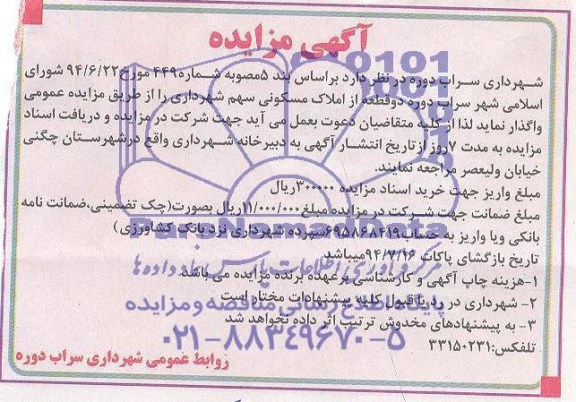 آگهی مزایده
شهرداری سراب دوره در نظر دارد براساس بند ۵مصوبه شماره۴۴۹ مورخ۹۴/۶/۲۲ شورای
اسلامی شهر سراب دوره دوقطعه از املاک مسکونی سهم شهرداری را از طریق مزایده عمومی
واگذار نماید لذا از کلیه متقاضیان دعوت بعمل می آید جهت شرکت در مزایده و دریافت اسناد
مزایده به مدت ۷روز از تاریخ انتشار آگهی به دبیرخانه شهرداری واقع درشهرستان چگنی
خیابان ولیعصر مراجعه نمایند.
مبلغ واریز جهت خرید اسناد مزایده ۳۰۰۰۰۰ریال
مبلغ ضمانت جهت شرکت در مزایده مبلغ۱۱/۰۰۰/۰۰۰ریال بصورت(چک تضمینی،ضمانت نامه
بانکی ویا واریز به حساب۶۹۵۸۶۸۴۱۹سپرده شهرداری نزد بانک کشاورزی)
تاریخ بازگشای پاکات ۹۴/۷/۱۶میباشد
۱-هزینه چاپ آگهی و کارشناسی برعهده برنده مزایده می باشد
۲- شهرداری در رد یا قبول کلیه پیشنهادات مختار است
۳- به پیشنهادهای مخدوش ترتیب اثر داده نخواهد شد
تلفکس:۳۳۱۵۰۲۳۱
روابط عمومی شهرداری سراب دوره
پایگاه اطلاع رسانی مناقصه و مزایده
۰۲۱-۸۸۳۴۹۶۷۰-۵